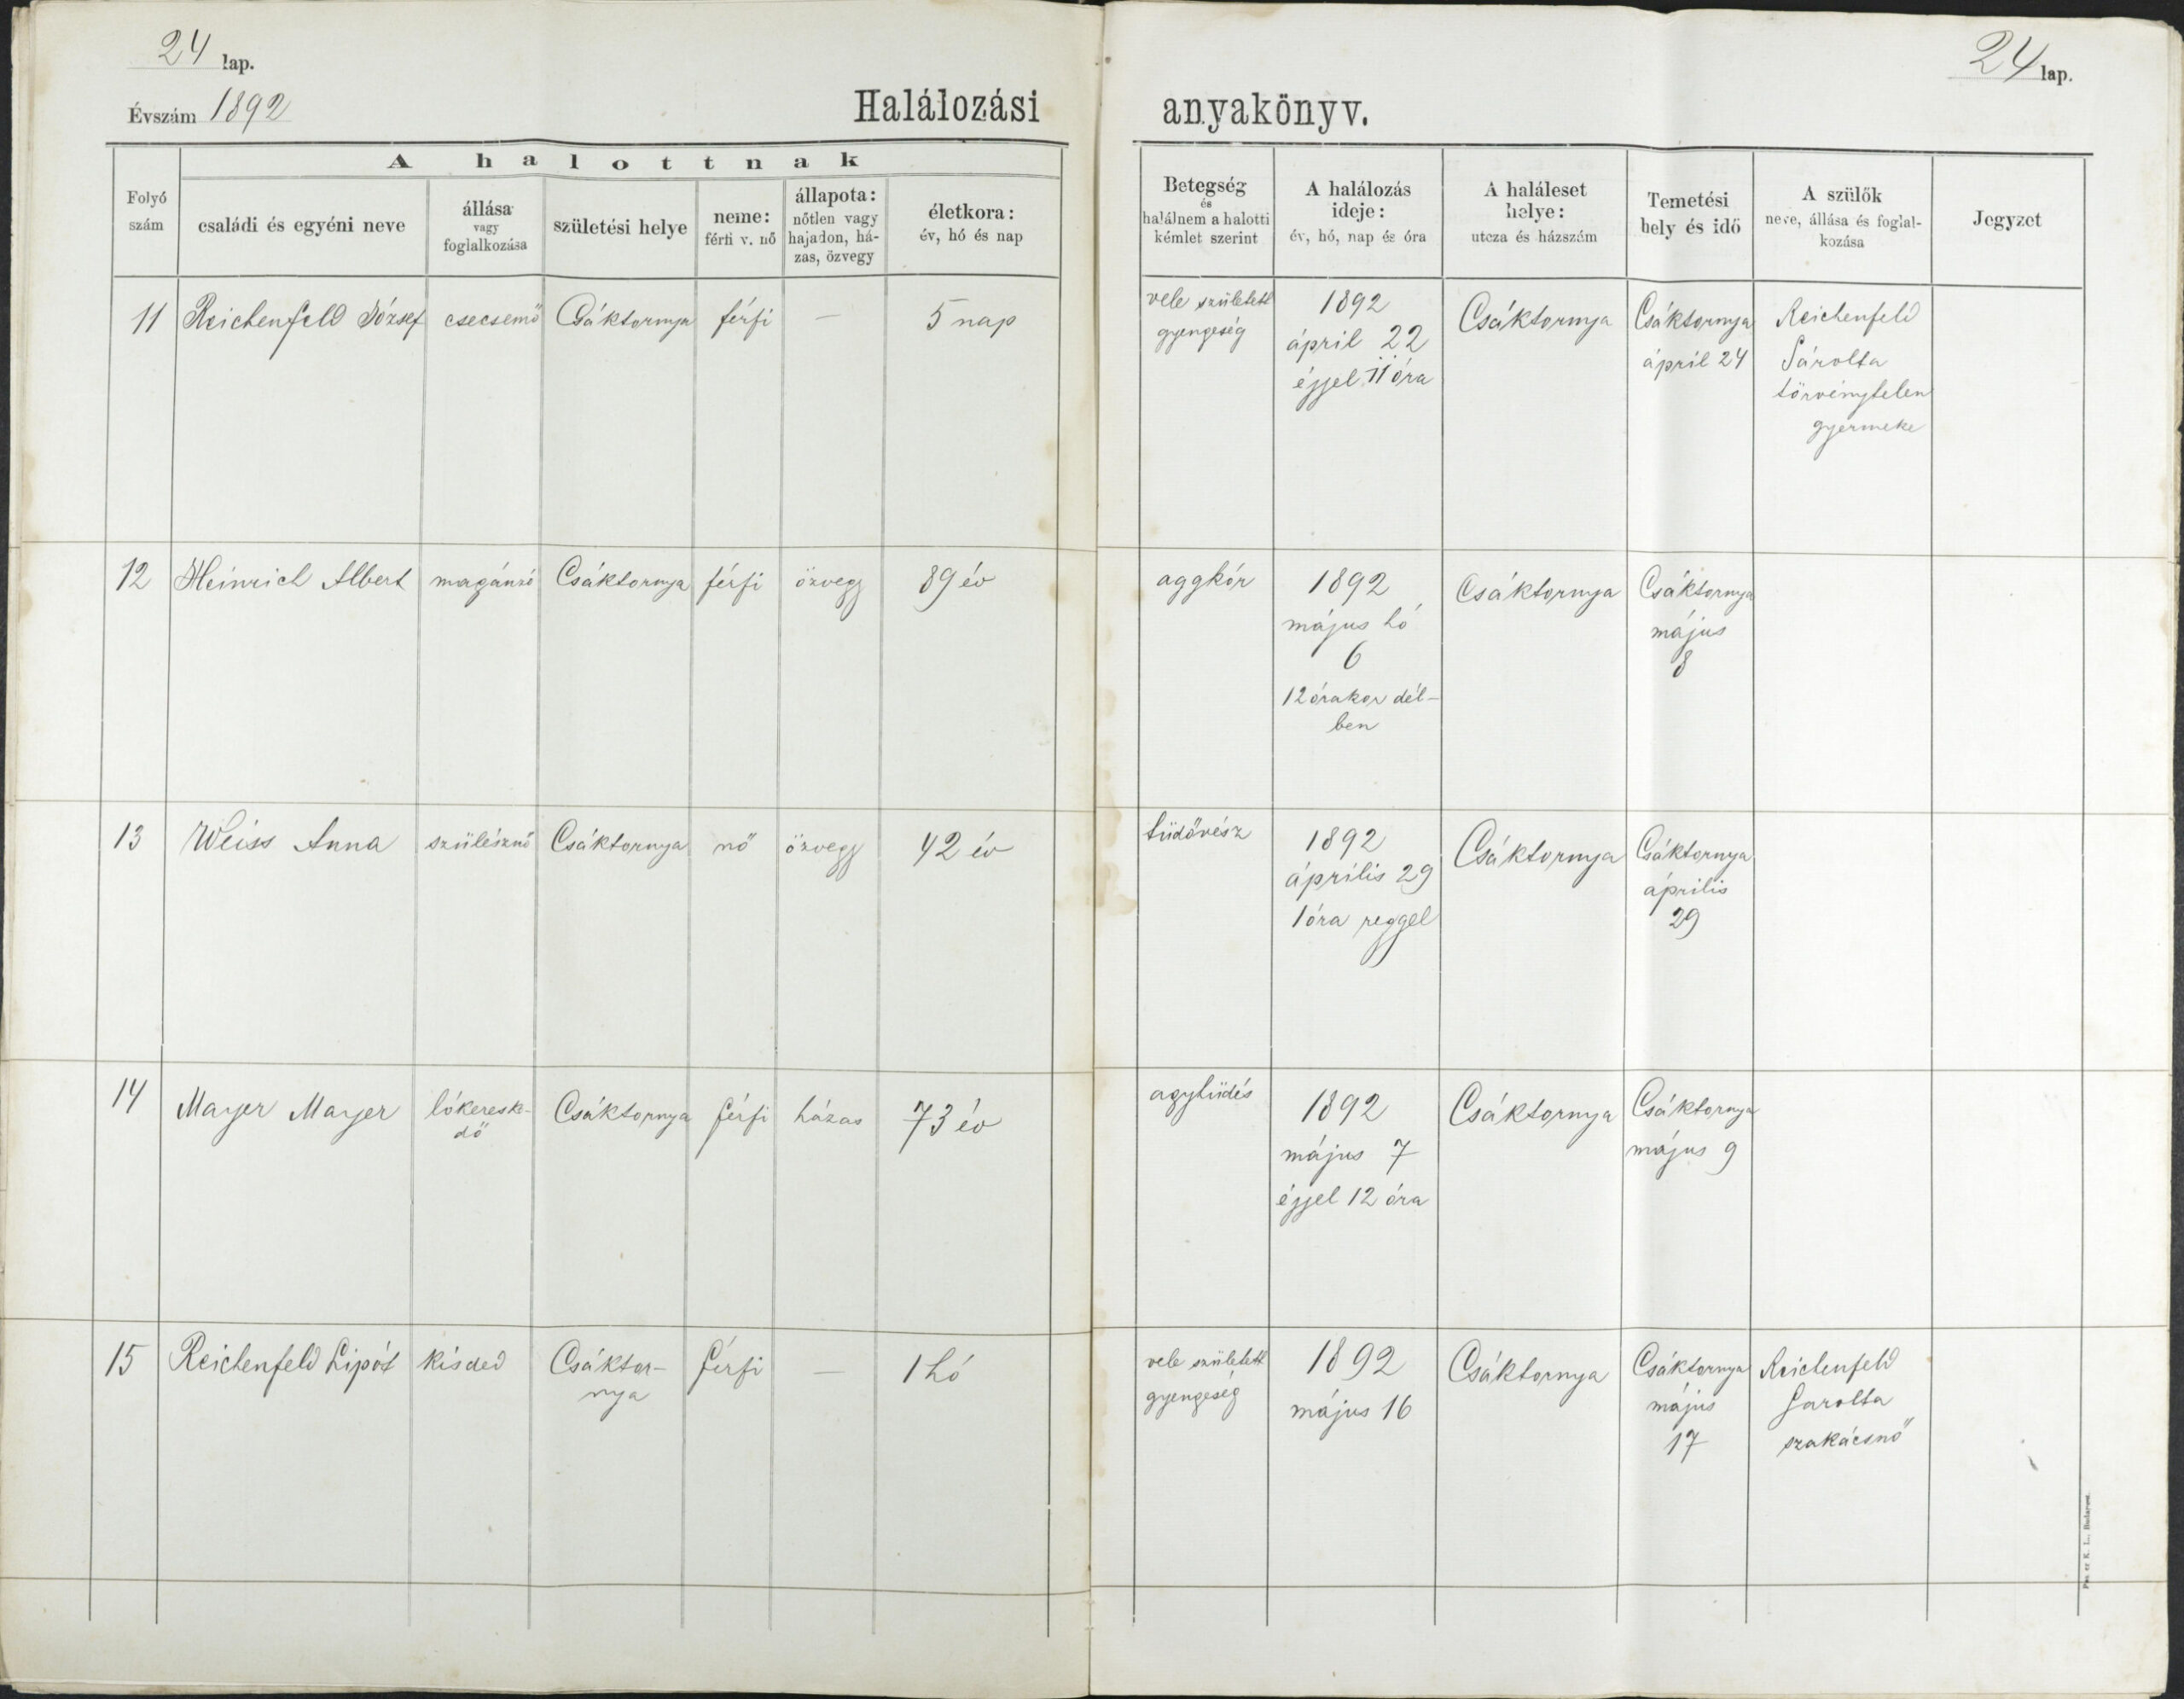 24 lap.
Évszám 1892
Halálozási anyakönyv.
24 lap.
A halottnak
Folyó szám
családi és egyéni neve
állása vagy foglalkozása
születési helye
neme: férfi v. nő
állapota: nőtlen vagy hajadon, házas, özvegy
életkora: év, hó és nap
Betegség és halálnem a halotti kémlet szerint
A halálozás ideje: év, hó, nap és óra
A haláleset helye: utcza és házszám
Temetési hely és idő
A szülők neve, állása és foglalkozása
Jegyzet
11 Reichenfeld József csecsemő Csáktornya férfi — 5 nap
vele született
gyengeség
1892
ápril 22
éjjel 11 óra
Csáktornya
Csáktornya
ápril 24
Reichenfeld
Sárolta
törvénytelen
gyermeke
12 Heinrich Albert magánzó Csáktornya férfi özvegy 89 év
aggkór
1892
május hó
6
12 órakor dél-
ben
Csáktornya
Csáktornya
május
8
13 Weiss Anna szülésznő Csáktornya nő özvegy 42 év
tüdővész
1892
április 29
1 óra reggel
Csáktornya
Csáktornya
április
29
14 Mayer Mayer lókeresk-
dő
Csáktornya férfi házas 73 év
agyhüdés
1892
május 7
éjjel 12 óra
Csáktornya
Csáktornya
május 9
15 Reichenfeld Lipót kisded Csáktor-
nya
férfi — 1 hó
vele született
gyengeség
1892
május 16
Csáktornya
Csáktornya
május
17
Reichenfeld
Sarolta
szakácsnő